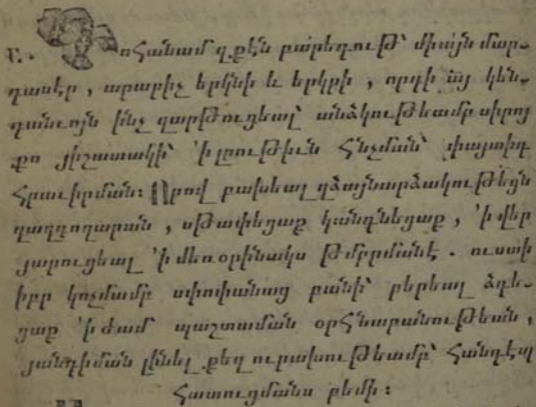 ոհանամ զքէն բարերդութի՝ միայն մար-
դասէր, արարիչ երկնի և երկրի, որպի
գանւոյն ինչ զարթուցեալ՝ անձկութեամբ սիրոյ
քո յիշատակի՝ 'ի լրութիւն հնչման՝ փայտիդ
հրաւիրման։ Որով բախեալ զձայնարձակութեցն
զաղղողարան, սթափեցաք կանգնեցաք, 'ի վեր
յարուցեալ 'ի մեռօրինակս թմբրմանէ. ուստի
իբր կոչմամբ սփոփանաց բանի՝ բերեալ ձգե-
ցաք 'ի ժամ պաշտաման օրհնաբանութեան,
յանդիման լինել քեզ ուրախութեամբ՝ հանդէպ
հատուցմանս բեմի։